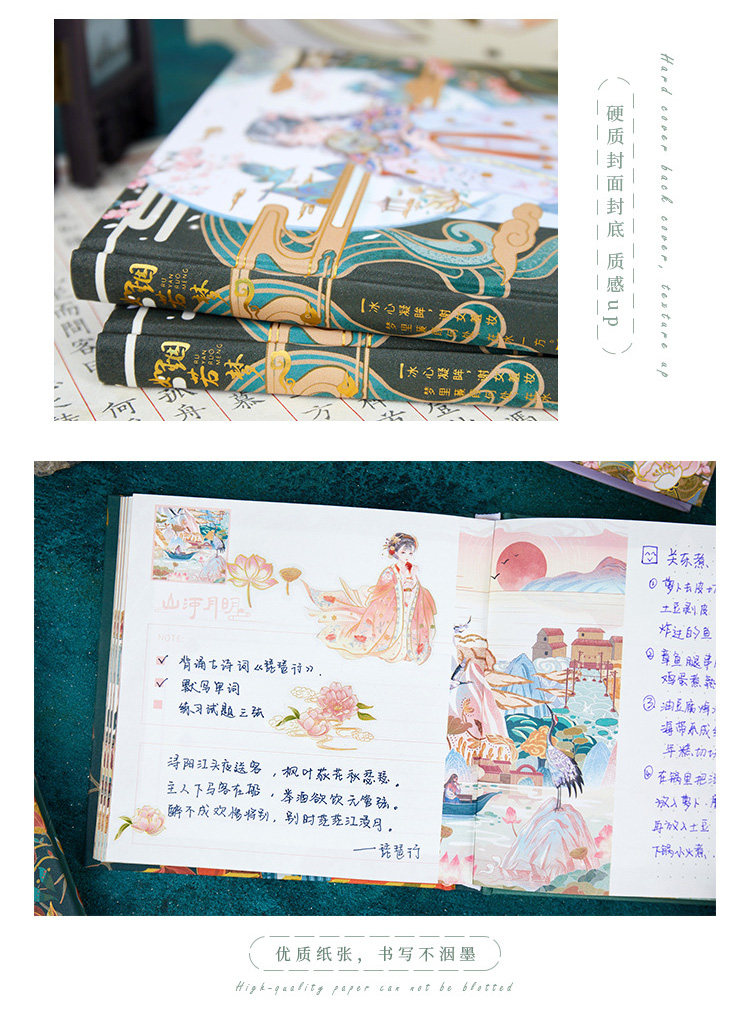 硬质封面封底 质感up
Hard cover back cover, texture up
如烟若梦
RU
YAN
RUO
MENG
冰心凝眸，谢女 妆
梦里蒹
如烟若梦
RU
YAN
RUO
MENG
冰心凝眸，谢女 妆
梦里蒹
而問客
何
孤舟
慕
方
山河月明
NOTE:
背诵古诗词《琵琶行》.
默写单词
练习试题三张
浔阳江头夜送客，枫叶荻花秋瑟瑟。
主人下马客在船，举酒欲饮无管弦。
醉不成欢惨将别，别时茫茫江浸月。
——琵琶行
关东煮、
①萝卜去皮切
土豆削皮
炸过的鱼
②章鱼腿串
鸡蛋煮
③油豆腐
海带
年糕切
④在锅里把
放入萝卜
再放入土豆
下锅小火煮.
优质纸张，书写不洇墨
High-quality paper can not be blotted